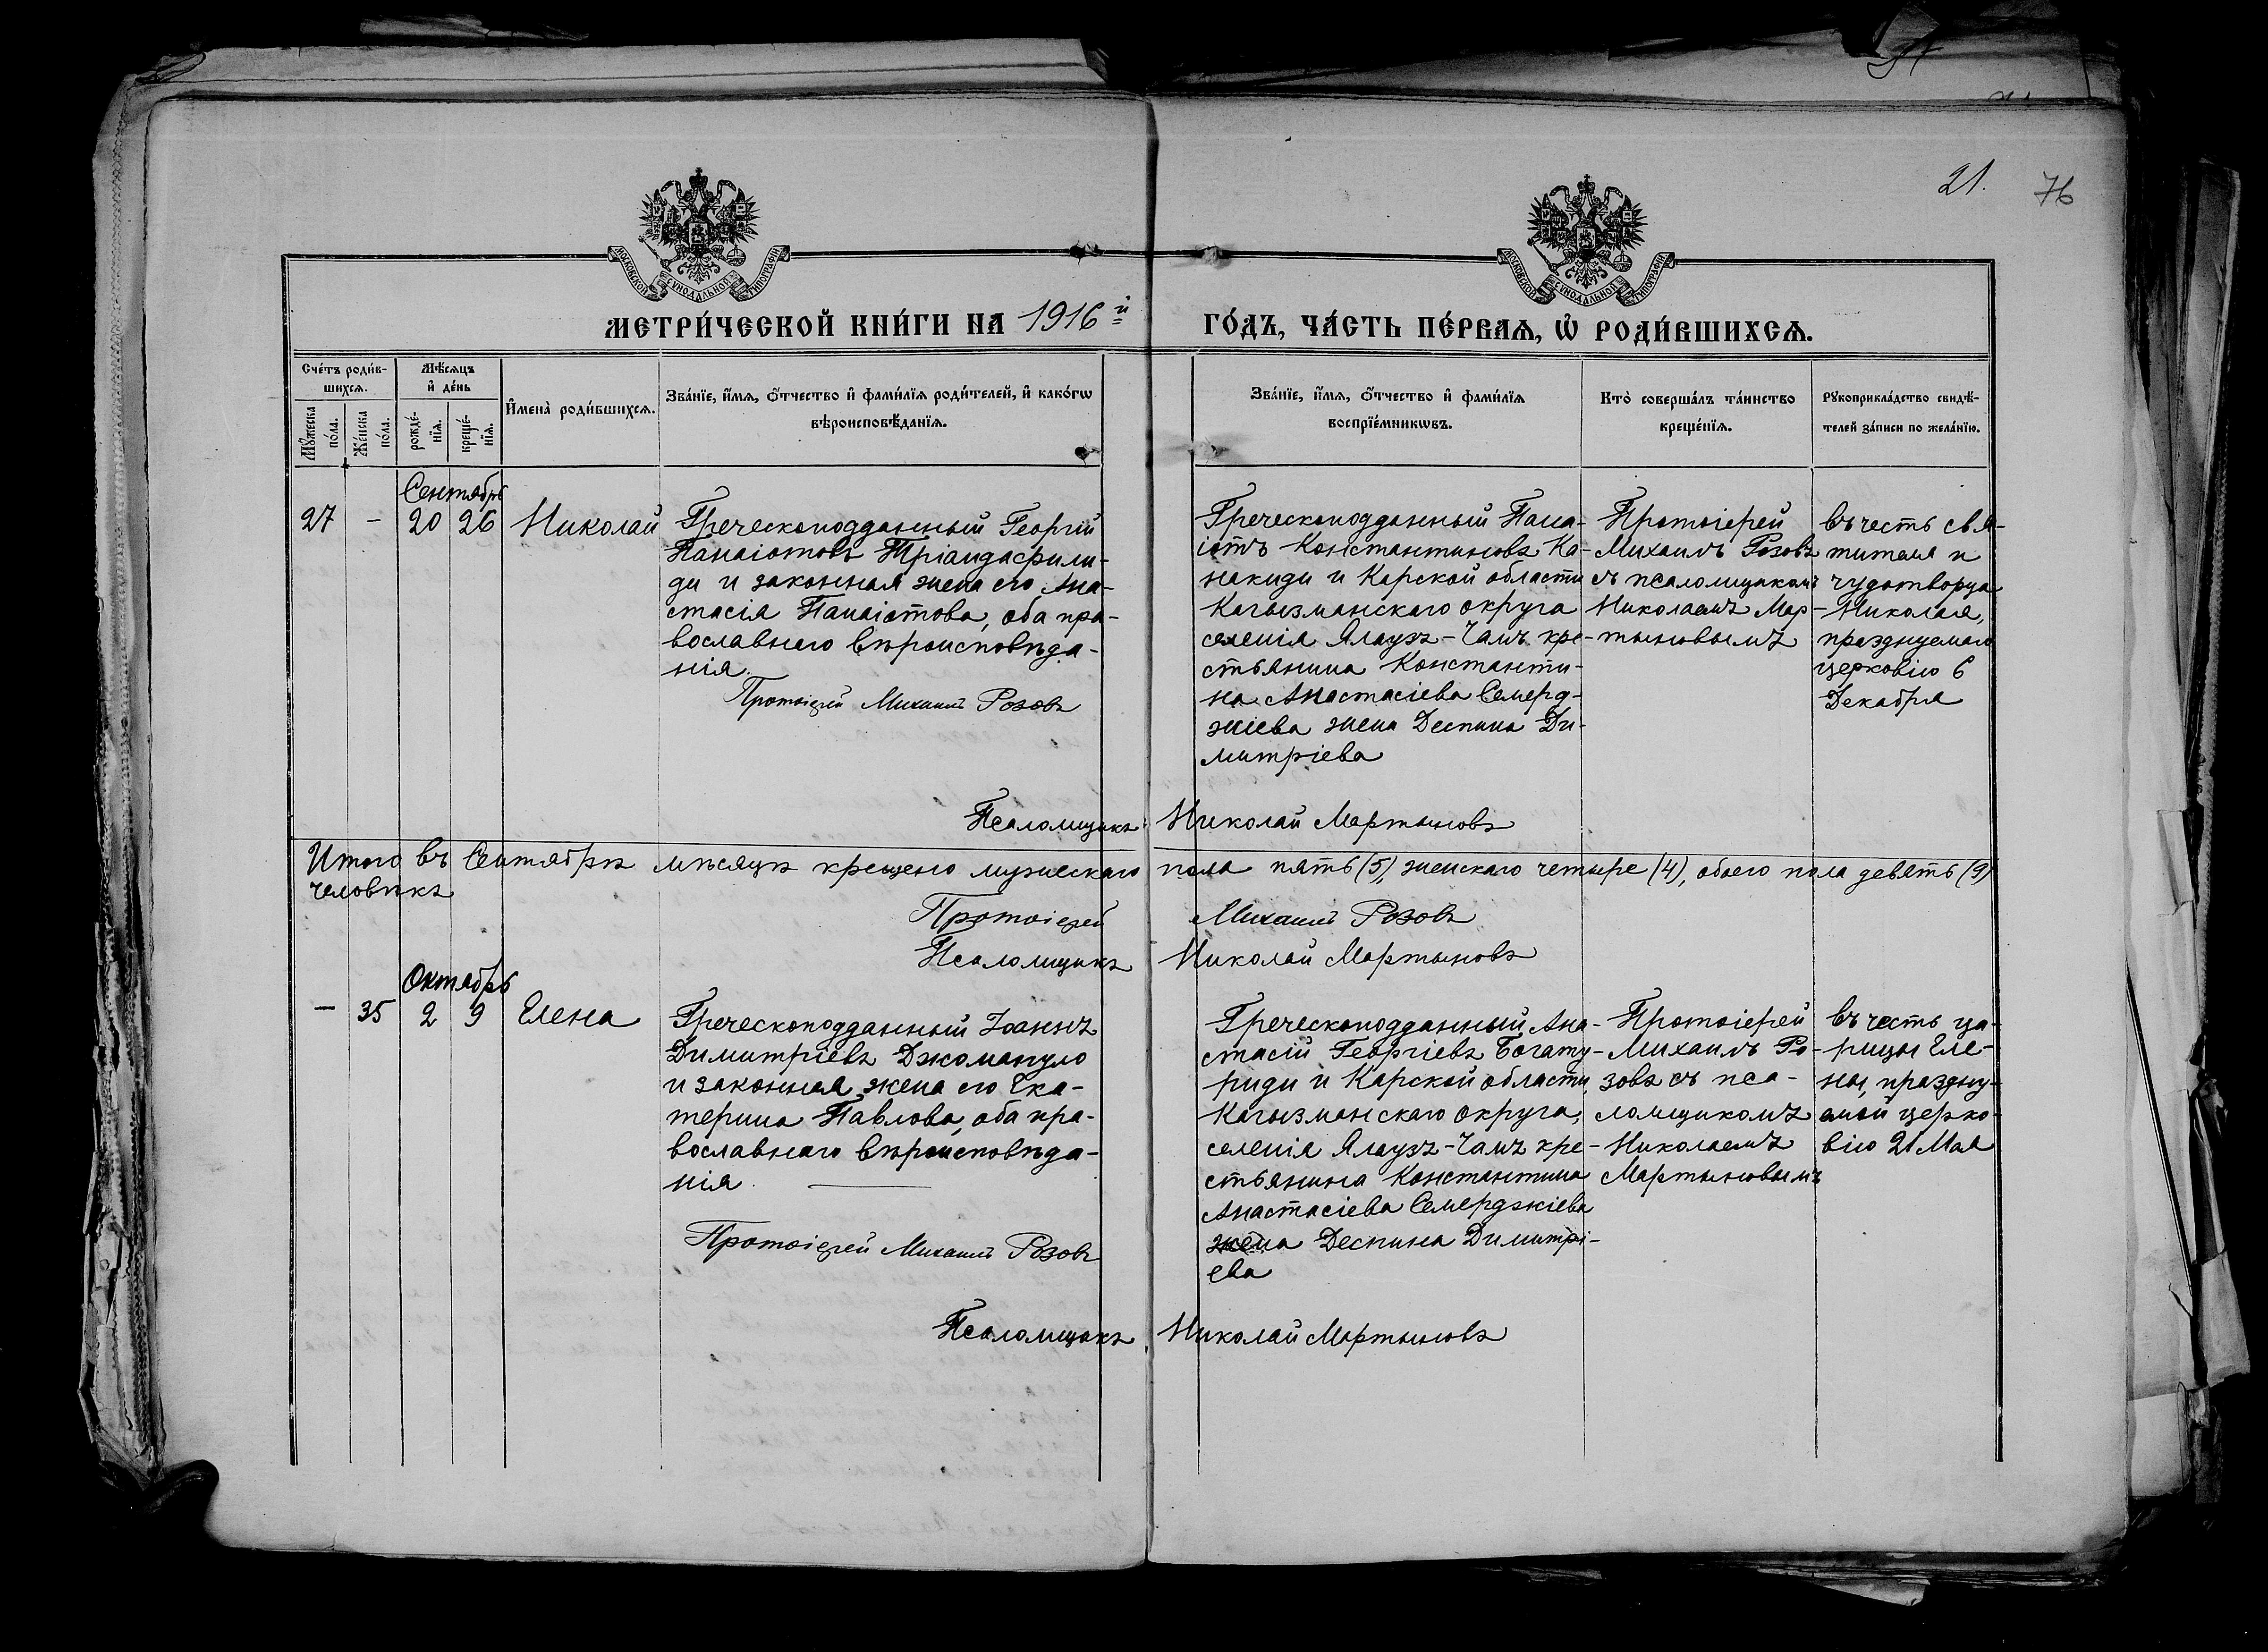 21. 76
МОСКОВСКОЙ СѴНОДАЛЬНОЙ ТИПОГРАФІИ
МОСКОВСКОЙ СѴНОДАЛЬНОЙ ТИПОГРАФІИ
МЕТРИ́ЧЕСКОЙ КНИ́ГИ НА 1916й ГО́ДЪ, ЧА́СТЬ ПЕ́РВАѦ, Ѡ҆ РОДИ́ВШИХСѦ.
Сче́тъ роди́в-
шихсѧ.
Мꙋ́жеска
по́ла.
Же́нска
по́ла.
Мѣ́сѧцъ
и҆ де́нь
рожде́-
нїѧ.
креще́-
нїѧ.
И҆мена̀ роди́вшихсѧ.
Зва́нїе, и҆́мѧ, ѻ҆́тчество и҆ фами́лїѧ роди́телей, и҆ како́гѡ
вѣроисповѣ́данїѧ.
Зва́нїе, и҆́мѧ, ѻ҆́тчество и҆ фами́лїѧ
воспрїе́мникѡвъ.
Кто̀ соверша́лъ та́инство
креще́нїѧ.
Рꙋкоприкла́дство свидѣ́-
телей за́писи по жела́нїю.
Сентябрь
27 - 20 26 Николай
Греческоподданный Георгій
Панаіотовъ Тріандафили-
ди и законная жена его Ана-
стасія Панаіотова, оба пра-
вославнаго вѣроисповѣда-
нія.
Протоіерей Михаилъ Розовъ
Греческоподданный Пана-
іотъ Константиновъ Ка-
накиди и Карской области
Кагызманскаго округа
селенія Ялаузъ-Чамъ кре-
стьянина Константи-
на Анастасіева Семерд-
жіева жена Деспина Ди-
митріева
Протоіерей
Михаилъ Розовъ
съ псаломщикомъ
Николаемъ Мар-
тыновымъ
въ честь свя-
тителя и
чудотворца
Николая,
празднуемаго
церковію 6
Декабря
Псаломщикъ Николай Мартыновъ
Итого въ Сентябрѣ мѣсяцѣ крещено мужескаго пола пять (5), женскаго четыре (4), обоего пола девять (9)
человѣкъ
Протоіерей Михаилъ Розовъ
Псаломщикъ Николай Мартыновъ
Октябрь
— 35 2 9 Елена
Греческоподданный Іоаннъ
Димитріевъ Джомануло
и законная жена его Ека-
терина Павлова, оба пра-
вославнаго вѣроисповѣда-
нія.
Протоіерей Михаилъ Розовъ
Греческоподданный Ана-
стасій Георгіевъ Богату-
риди и Карской области,
Кагызманскаго округа,
селенія Ялаузъ-Чамъ кре-
стьянина Константина
Анастасіева Семерджіева
жена Деспина Димитрі-
ева
Протоіерей
Михаилъ Ро-
зовъ съ пса-
ломщикомъ
Николаемъ
Мартыновымъ
въ честь ца-
рицы Еле-
ны, праздну-
емой церко-
вію 21 Мая
Псаломщикъ Николай Мартыновъ